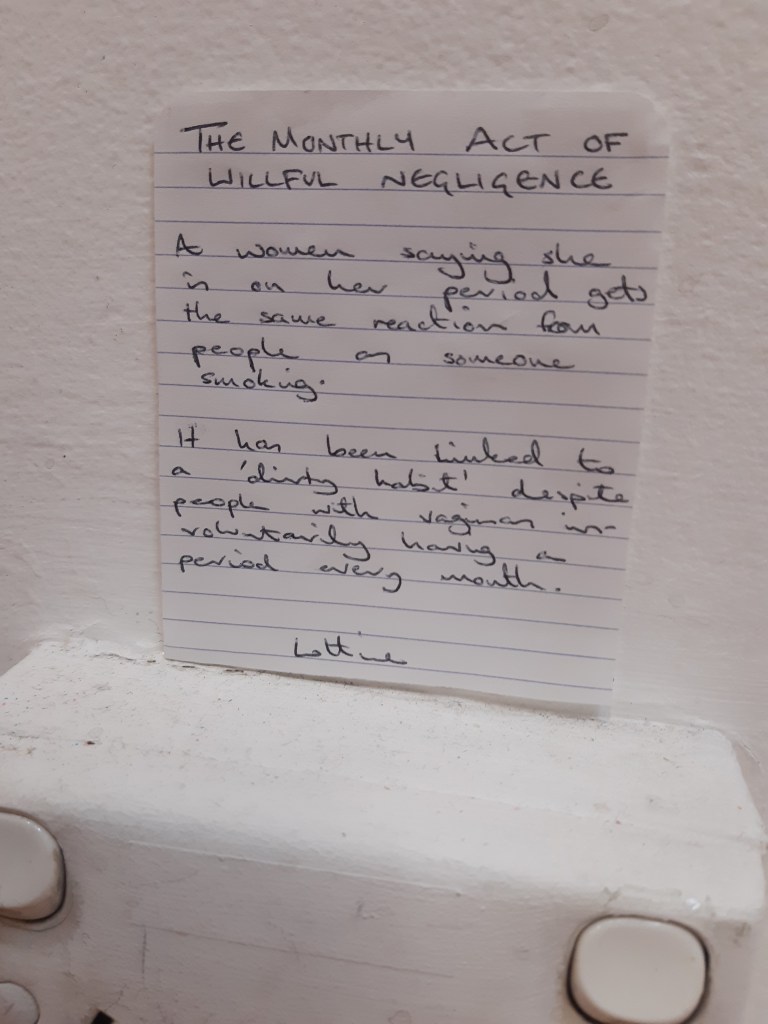 THE MONTHLY ACT OF
WILLFUL NEGLIGENCE
A women saying she
is on her period gets
the same reaction from
people as someone
smoking.
It has been linked to
a 'dirty habit' despite
people with vaginas in-
voluntarily having a
period every month.